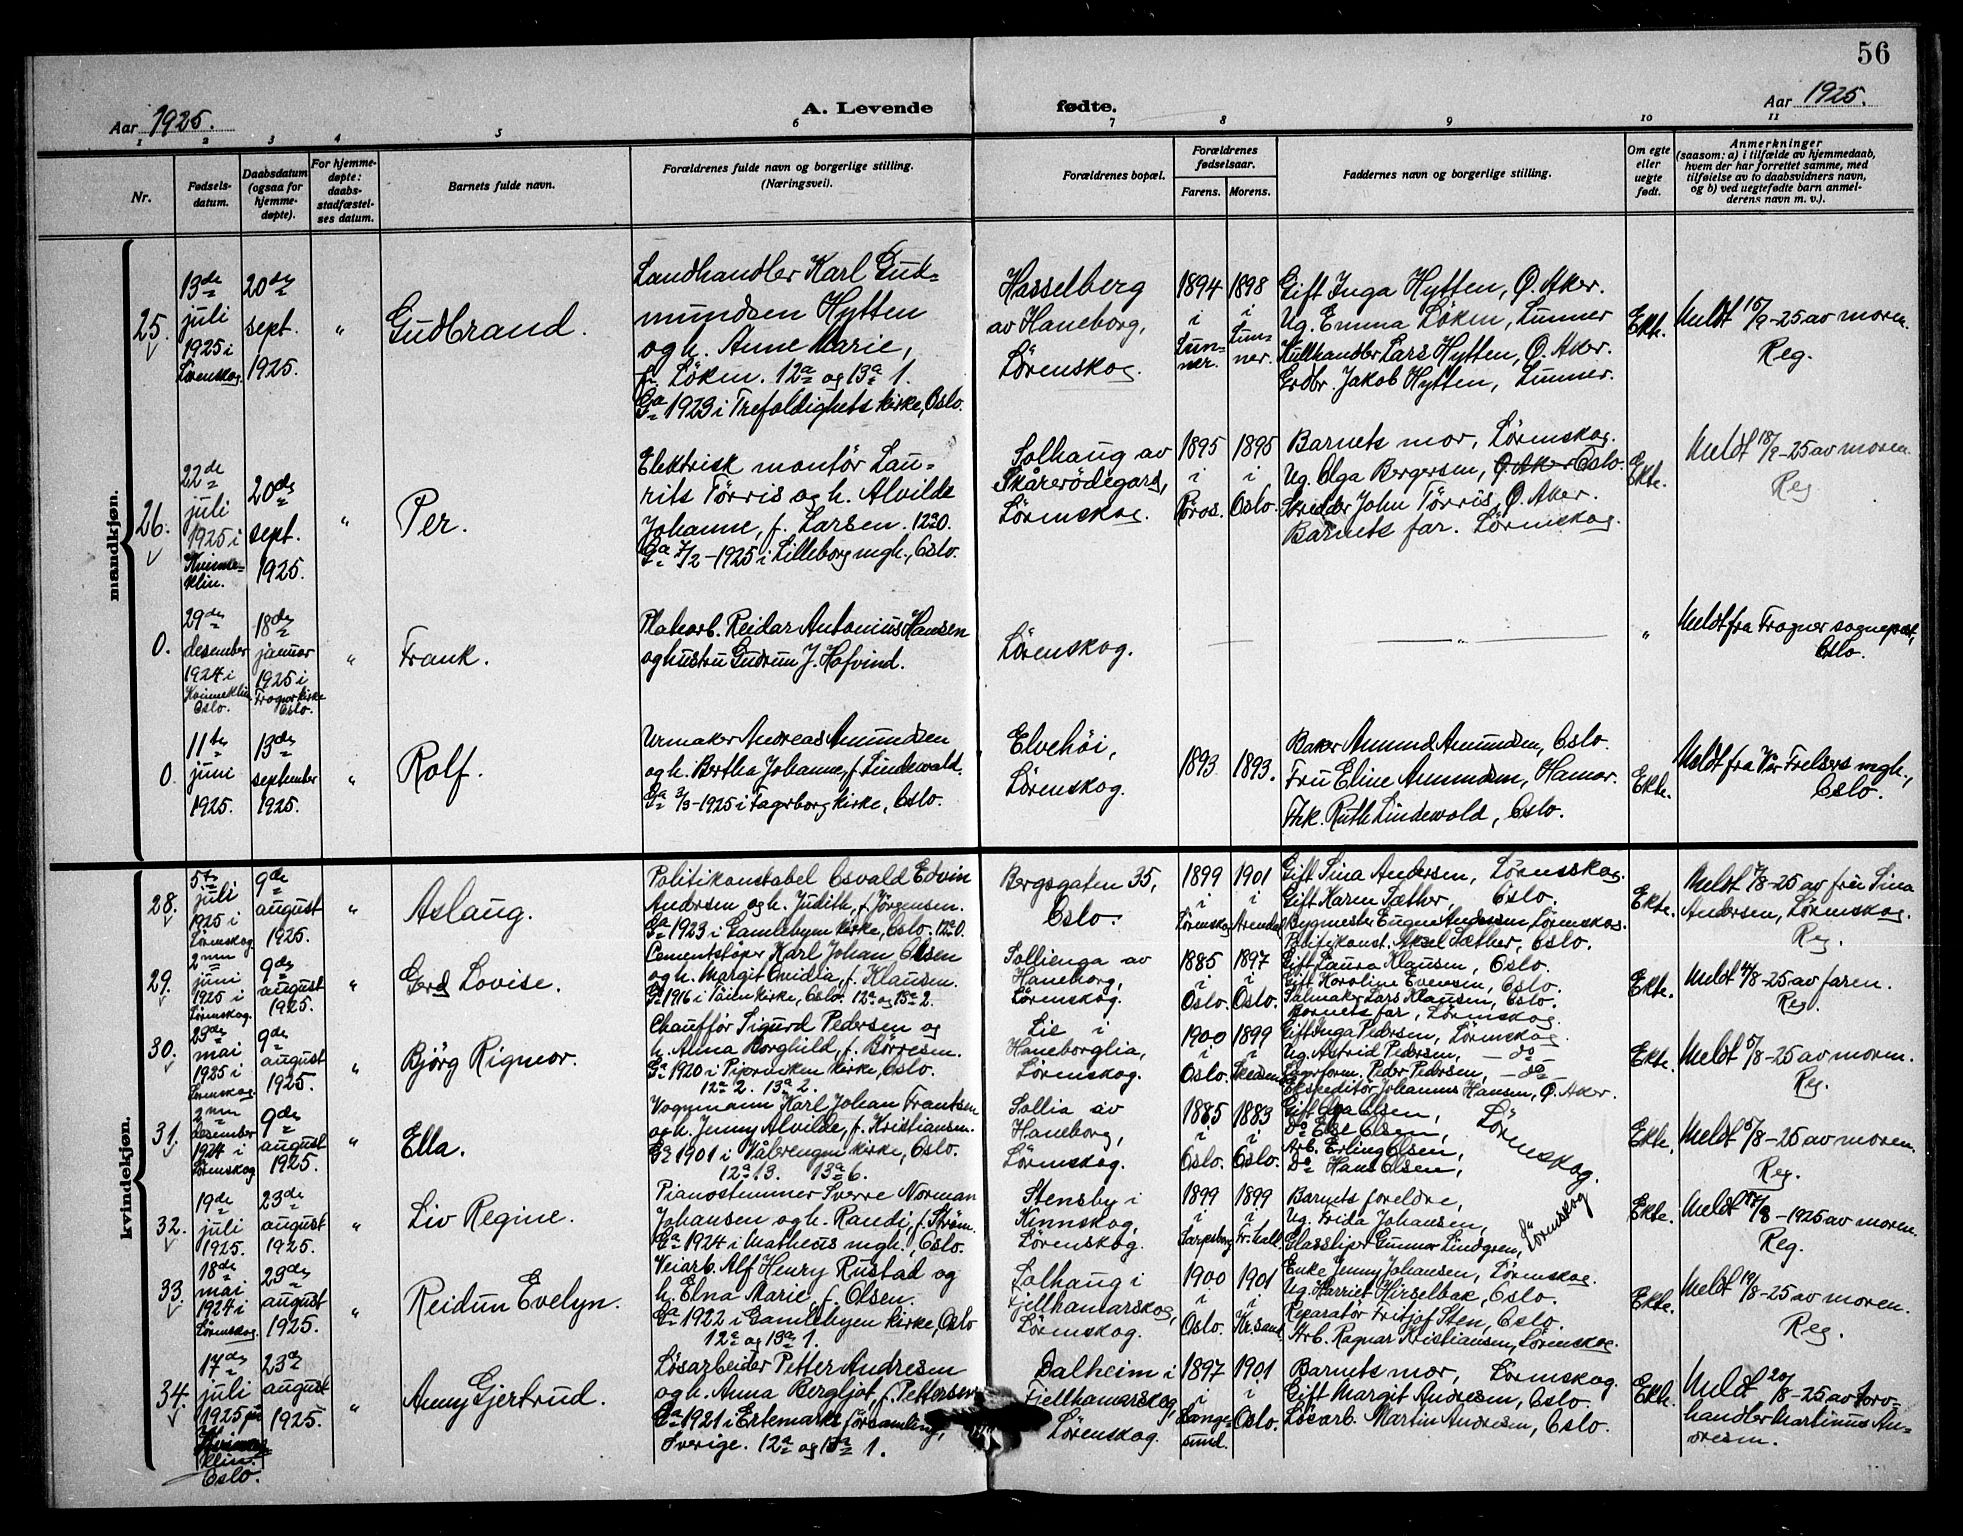 56
Aar 1925.
A. Levende fødte.
Aar 1925.
1 2 3 4 5 6 7 8 9 10 11
Nr.
Fødsels-
datum.
Daabsdatum
(ogsaa for
hjemme-
døpte).
For hjemme-
døpte:
daabs-
stadfæstel-
ses datum.
Barnets fulde navn.
Forældrenes fulde navn og borgerlige stilling.
(Næringsvei).
Forældrenes bopæl.
Forældrenes
fødselsaar.
Farens. Morens.
Faddernes navn og borgerlige stilling.
Om egte
eller
uegte
født.
Anmerkninger
(saasom: a) i tilfælde av hjemmedaab,
hvem der har forrettet samme, med
tilføielse av to daabsvidners navn,
og b) ved uegtefødte barn anmel-
derens navn m. v.).
mandkjøn.
25.
13de
juli
1925 i
Lørenskog.
20de
sept.
1925.
"
Gudbrand.
Landhandler Karl Gud-
mundsen Hytten
og h. Anne Marie,
f. Løken. 12a og 13a 1.
Ga 1923 i Trefoldighets kirke, Oslo.
Hasselberg
av Haneborg,
Lørenskog.
1894
i
Lun-
ner.
1898
i
Lun-
ner.
Gift Inga Hytten, Ø. Aker.
Ug. Emma Løken, Lunner
Kullhandler Lars Hytten, Ø. Aker.
Grdbr. Jakob Hytten, Lunner.
Ekte.
Meldt 15/9-25 av moren.
Reg.
26.
22de
juli
1925 i
Kvinne-
klin.
20de
sept.
1925.
"
Per.
Elektrisk montör Lau-
rits Törris og h. Alvilde
Johanne, f. Larsen. 12a 0.
Ga 7/2-1925 i Lilleborg mgh., Oslo.
Solhaug av
Skårerödegard,
Lörenskog.
1895
i
Röros.
1895
i
Oslo.
Barnets mor, Lörenskog.
Ug. Olga Bergersen, Ø. Aker Oslo.
Skredder John Törris, Ø. Aker.
Barnets far. Lörenskog.
Ekte.
Meldt 18/9-25 av moren.
Reg
0.
29de
desember
1924 i
Kvinneklin
Oslo.
18de
januar
1925 i
Frogner kirke
Oslo.
"
Frank.
Platearb. Reidar Antonius Hansen
og hustru Gudrun J. Hofvind.
Lörenskog.
— " —
"
Meldt fra Frogner sognepst,
Oslo.
0.
11te
juni
1925.
13de
september
1925.
"
Rolf.
Urmaker Andreas Amundsen
og h. Bertha Johanne, f. Lindewald.
Ga 3/3-1925 i Fagerborg kirke, Oslo.
Elvehöi,
Lörenskog.
1893
1893.
Baker Amund Amundsen, Oslo.
Fru Eline Amundsen, Hamar.
Frk. Ruth Lindewald, Oslo.
Ekte.
Meldt fra Vår Frelsers mgh.,
Oslo.
kvindekjøn.
28.
5te
juli
1925 i
Lörenskog
9de
august
1925.
"
Aslaug.
Politikonstabel Osvald Edvin
Andersen og h. Judith, f. Jörgensen.
Ga 1923 i Gamlebyen kirke, Oslo. 12a 0.
Bergsgaten 35,
Oslo.
1899
i
Lörenskog
1901
i
Arendal.
Gift Lina Andersen, Lörenskog.
Gift Karen Sæther, Oslo.
Bygmester Eugen Andersen, Lörenskog.
Politikonst. Aksel Sæther, Oslo.
Ekte.
Meldt 5/8-25 av fru Lina
Andersen, Lörenskog.
Reg.
29.
2nen
juni
1925 i
Lörenskog.
9de
august
1925.
"
Gerd Lovise.
Cementstöper Karl Johan Olsen
og h. Margit Ovidia, f. Klausen.
Ga 1916 i Töien kirke, Oslo. 12a og 13a 2.
Sollienga av
Haneborg,
Lörenskog.
1885
i
Oslo.
1897
i
Oslo.
Gift Laura Klausen, Oslo.
Gift Karoline Evensen, Oslo.
Salmaker Lars Klausen, Oslo.
Barnets far, Lörenskog.
Ekte.
Meldt 4/8-25 av faren.
Reg.
30.
23de
mai
1925 i
Lörenskog.
9de
august
1925.
"
Björg Rigmor.
Chaufför Sigurd Pedersen og
h. Anna Borghild, f. Börresen.
Ga 1920 i Piperviken kirke, Oslo.
12a 2. 13a 2.
Lie i
Haneborglia,
Lörenskog.
1900
i
Oslo.
1899
i
Skedsmo
Gift Inga Pedersen, Lörenskog
Ug. Astrid Pedersen, — do —
Lagerform. Peder Pedersen, — do —
Ekspeditör Johannes Hansen, Ø. Aker.
Ekte.
Meldt 5/8-25 av moren.
Reg.
31.
2nen
desember
1924 i
Lörenskog
9de
august
1925.
"
Ella.
Vognmann Karl Johan Frantsen
og h. Jenny Alvilde, f. Kristiansen.
Ga 1901 i Vålerengen kirke, Oslo.
12a 13. 13a 6.
Sollia av
Haneborg,
Lörenskog.
1885
i
Oslo.
1883
i
Oslo.
Gift Olga Olsen,
Do Else Olsen,
Arb. Erling Olsen,
Do Hans Olsen,
Lörenskog.
Ekte.
Meldt 5/8-25 av moren.
Reg.
32.
19de
juli
1925.
23de
august
1925.
"
Liv Regine.
Pianostemmer Sverre Norman
Johansen og h. Randi, f. Ström.
Ga 1924 i Matheus mgh., Oslo.
Stensby i
Kinnskog,
Lörenskog.
1899
i
Sarpsborg
1899
i
Fr.hall.
Barnets foreldre,
Ug. Frida Johansen,
Glassliper Gunnar Lindgren,
Lörenskog
Ekte.
Meldt 17/8-1925 av moren.
Reg.
33.
18de
mai
1924 i
Lörenskog.
23de
august
1925.
"
Reidun Evelyn.
Veiarb. Alf Henry Rustad og
h. Elna Marie, f. Olsen.
Ga 1922 i Gamlebyen kirke, Oslo
12a og 13a 1.
Solhaug i
Fjellhamarskog,
Lörenskog.
1900
i
Oslo.
1901
i
Kr.sand
Enke Jenny Johansen, Lörenskog.
Ug. Harriet Hirselbak, Oslo.
Reparatör Fritjof Sten, Oslo.
Arb. Ragnar Kristiansen, Lörenskog.
Ekte.
Meldt 19/8-25 av moren.
Reg.
34.
17de
juli
1925 på
Kvinne
klin.
Oslo.
23de
august
1925.
"
Anny Gjertrud.
Løsarbeider Petter Andresen
og h. Anna Bergljot, f. Pettersen
Ga 1921 i Ertemarks församling,
Sverige. 12a og 13a 1.
Dalheim i
Fjellhamarskog,
Lörenskog.
1897
i
Lange-
sund.
1901
i
Oslo.
Barnets mor, Lörenskog.
Gift Margit Andresen, Oslo.
Lösarb. Martin Andresen, Oslo.
Ekte.
Meldt 20/8-25 av torv-
handler Martinus An-
dresen.